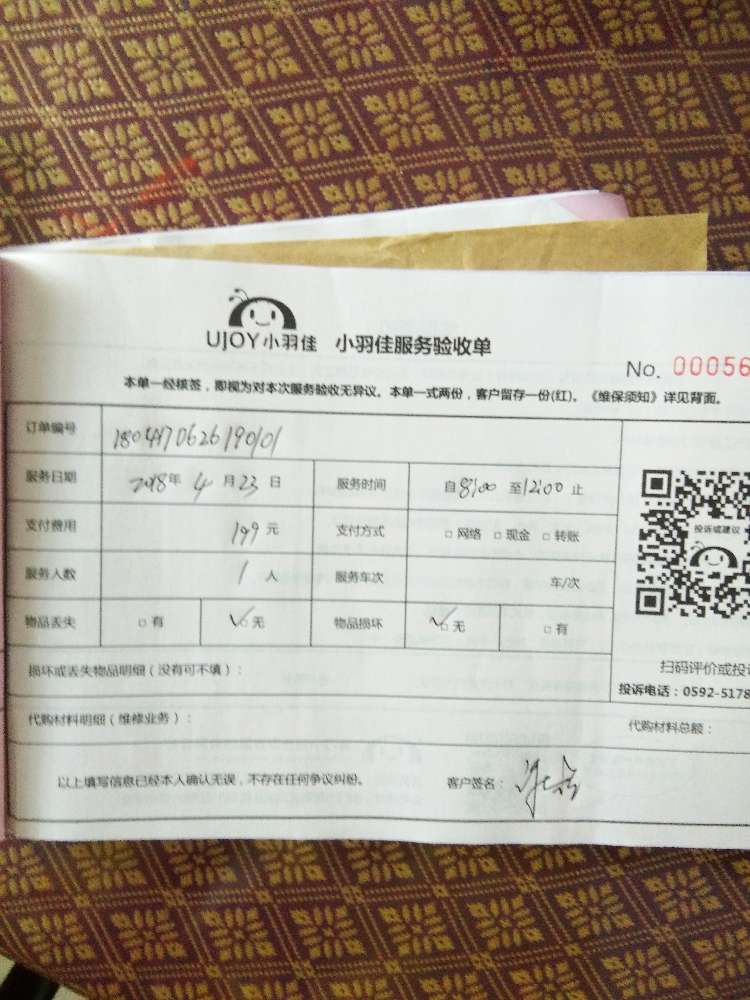 UJOY小羽佳 小羽佳服务验收单
No. 00056
本单一经核签，即视为对本次服务验收无异议。本单一式两份，客户留存一份(红)。《维保须知》详见背面。
订单编号
服务日期 2018年 4月23日 服务时间 自8:00至12:00止
支付费用 199元 支付方式 □网络 □现金 □转账
服务人数 1人 服务车次 车/次
物品丢失 □有 ✓□无 物品损坏 ✓□无 □有
投诉或建议
扫码评价或投诉
投诉电话：0592-5178
损坏或丢失物品明细（没有可不填）：
代购材料明细（维修业务）： 代购材料总额：
以上填写信息已经本人确认无误，不存在任何争议纠纷。 客户签名：